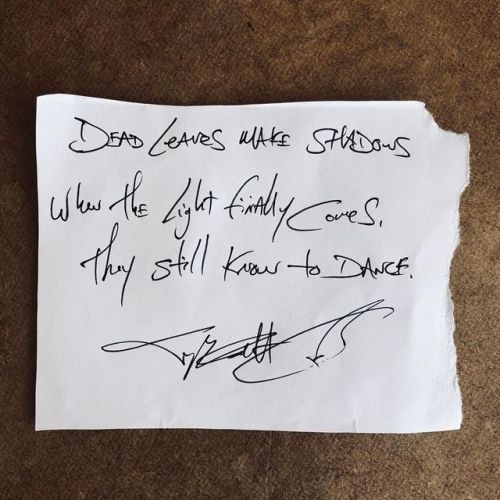 DEAD LEAVES MAKE SHADOWS
When the Light finally Comes,
they still Know to DANCE.